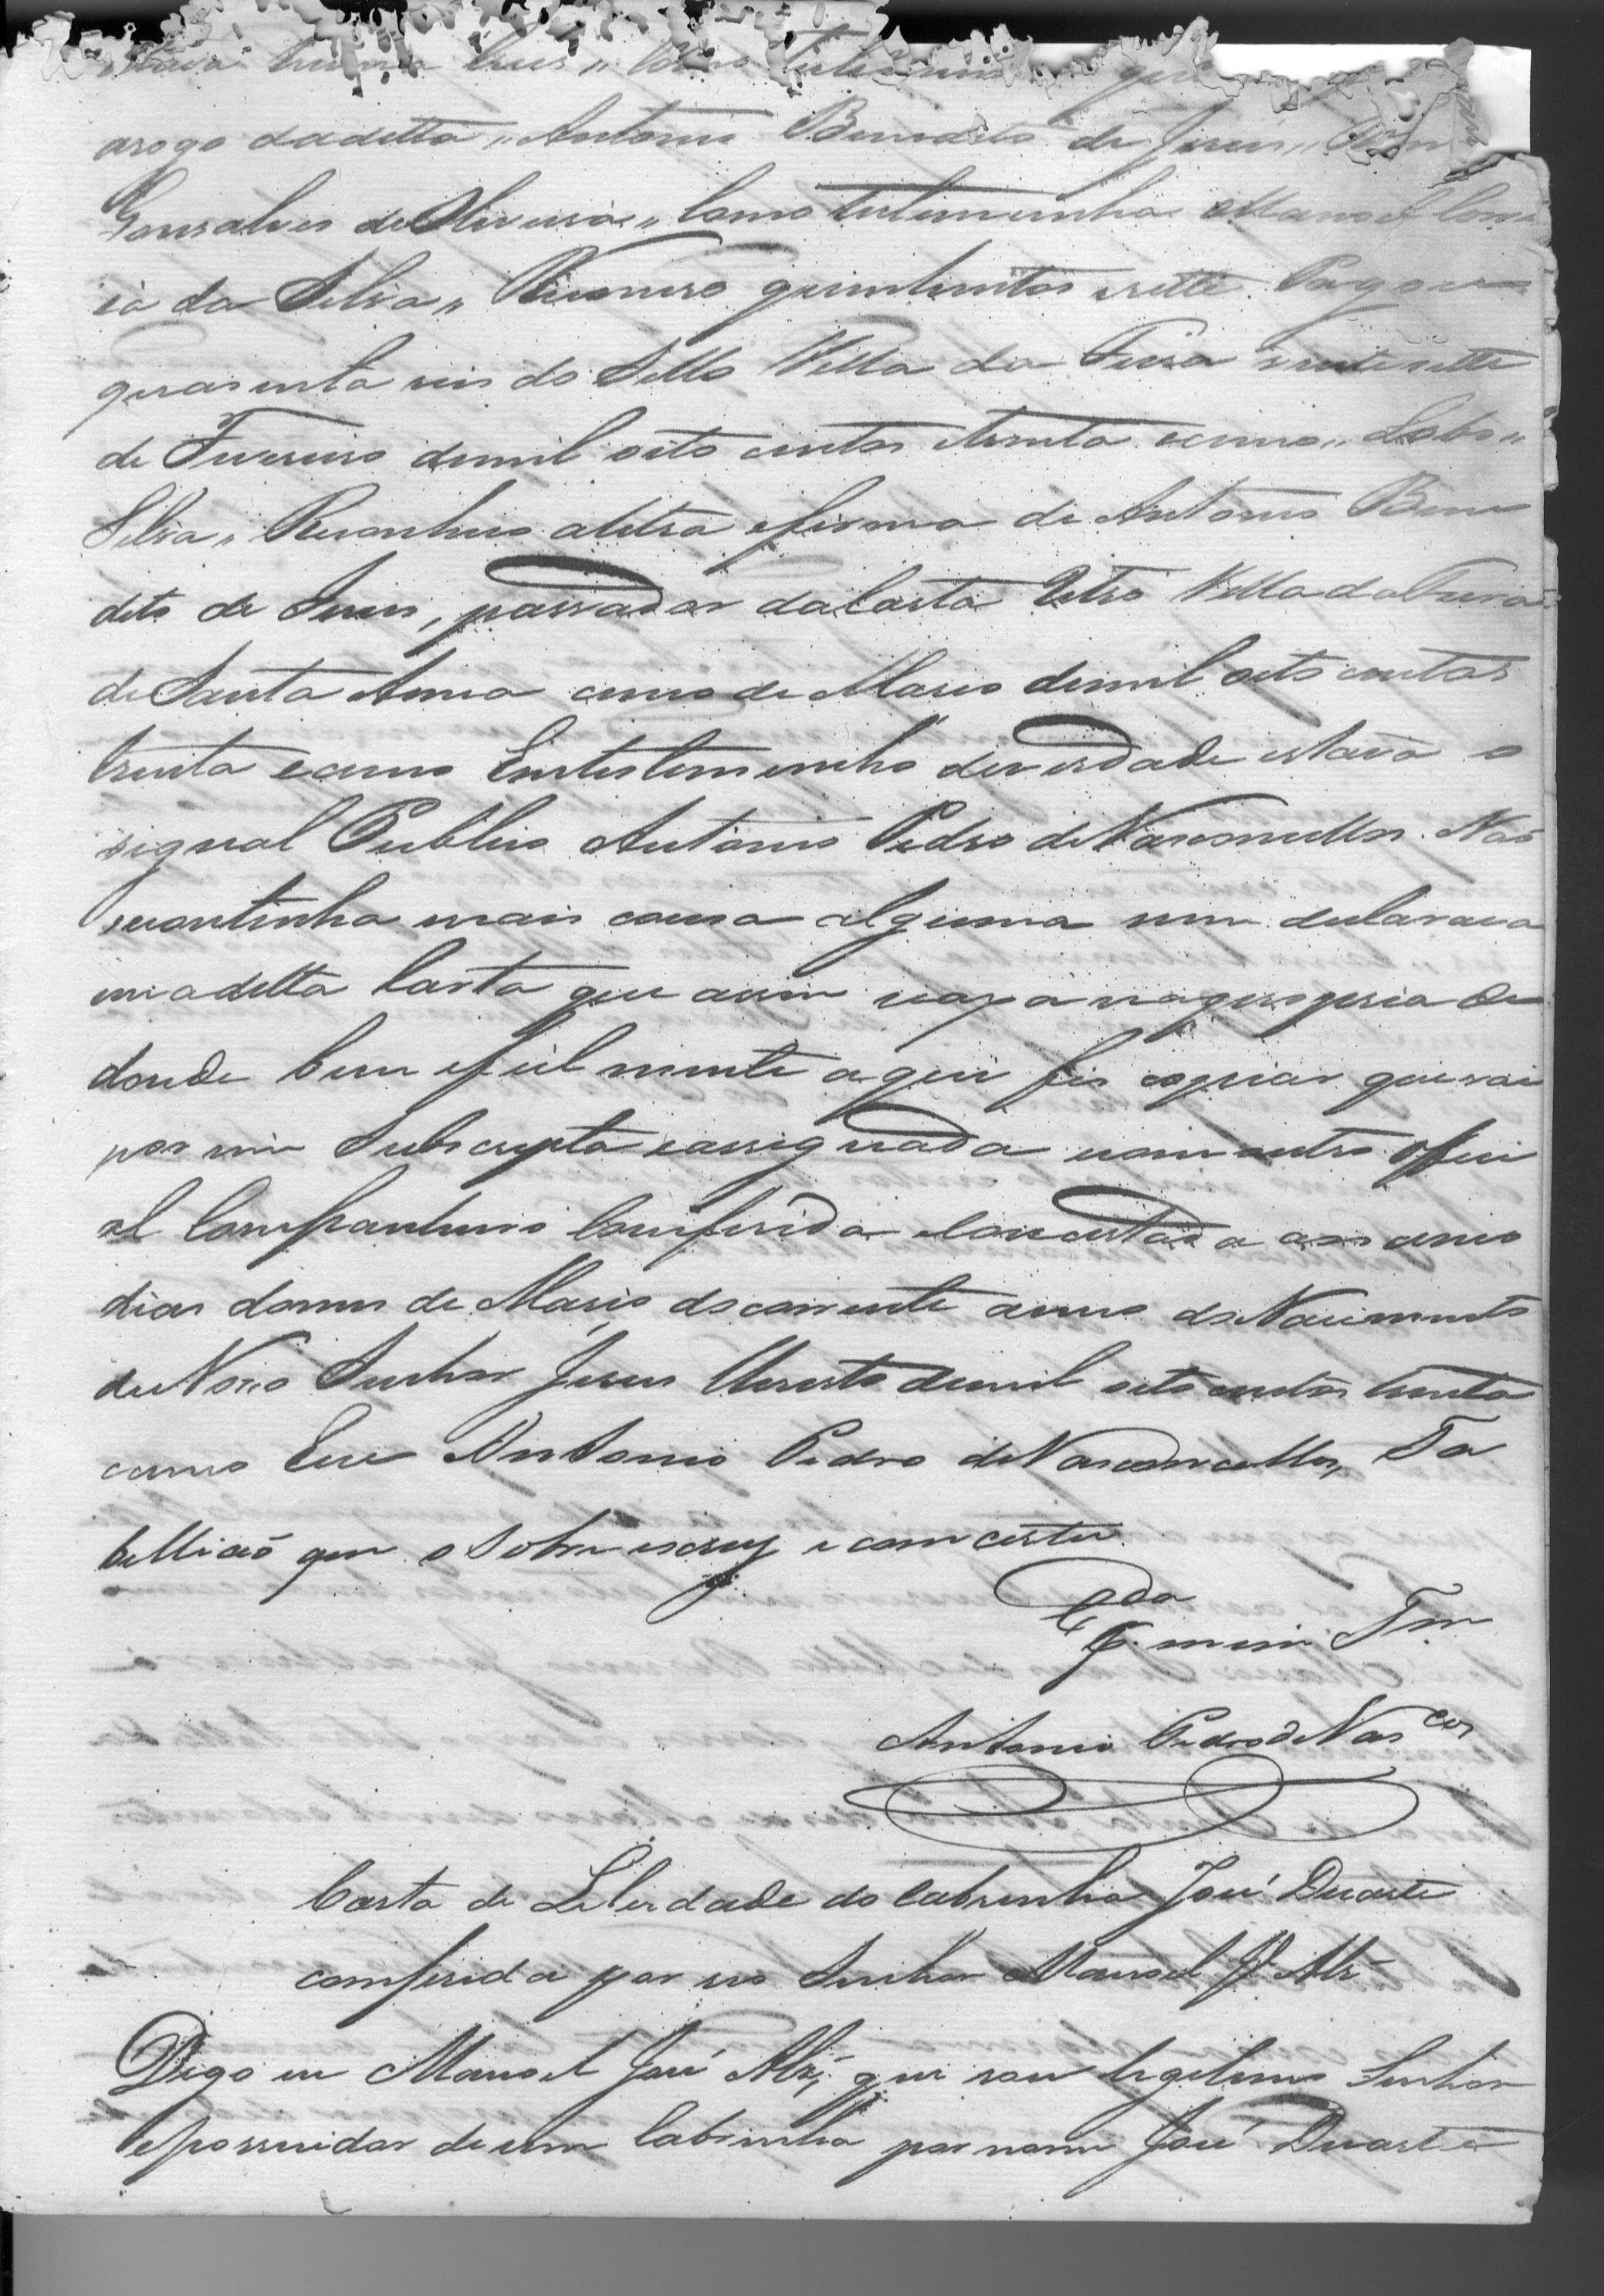 estava huma crus,, Como testemunha que
arogo dadetta,, Antonio Benedito de Jesus,,
Gonsalves de Oliveira,, Como testemunha Manoel Corre
ia da Silva,, Numero quinhentos esette. Pagou
quarenta reis do Sello Villa da Feira vinte sette
de Fevereiro demil oito centos etrinta ecinco,, Lobo,,
Silva,, Reconheço aletra efirma de Antonio Bene
dito de Jesus, passador daCarta Retro Villa da Feira
de Santa Anna cinco de Março demil oito centos
trinta ecinco Emtestemunho deverdade estava o
signal Publico Antonio Pedro de Vasconcellos. Não
secontinha mais cousa alguma nem declarava
em adetta Carta que assim seaxa na propria de
donde bem efielmente aqui fis copiar que vai
por mim Subscrypta eassignada ecom outro offici
al Companheiro Comferida eComcertada aos cinco
dias domes de Março do corrente anno do Nacimento
de Noso Senhor Jesus Christo demil oito centos trinta
ecinco Eu Antonio Pedro de Vasconcellos, Ta
bellião que o Sobrescrevy e comcertei
Cda
P. mim Tam
Antonio Pedro de Vascos
Carta de Liberdade do Cabrinha José Duarte
comferida por seo Senhor Manoel J. Alz
Digo eu Manoel José Alz, que sou legitimo Senhor
epossuidor de um Cabrinha por nome José Duarte